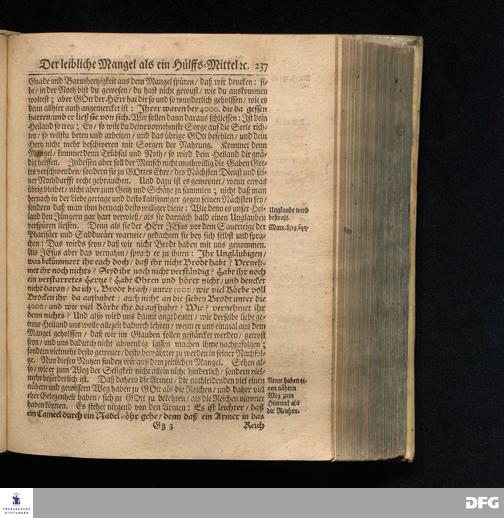 Der leibliche Mangel als ein Hülffs-Mittel ꝛc. 237
Gnade und Barmhertzigkeit aus dem Mangel spüren / daß wir dencken: sie-
he / in der Noth bist du gewesen / du hast nicht gewust / wie du auskommen
woltest; aber GOtt der HErr hat dir so und so wunderlich geholffen / wie es
denn allhier auch angemerckt ist: Ihrer waren bey 4000. die da gessen
hatten und er ließ sie von sich. Wir sollen dann daraus schliessen: Ist dein
Heiland so treu; Ey / so wilt du deine vornehmste Sorge auf die Seele rich-
ten / so wilstu beten und arbeiten / und das übrige GOtt befehlen / und dein
Hertz nicht mehr beschweren mit Sorgen der Nahrung. Kommet denn
Mangel / kommet denn Trübsal und Noth / so wird dein Heiland dir gnä-
dig helffen. Indessen aber soll der Mensch nicht muthwillig die Gaben Got-
tes verschwenden / sondern sie zu GOttes Ehre / des Nächsten Dienst und sei-
ner Nothdurfft recht gebrauchen. Und dazu ist es gemeynet / wenn etwas
übrig bleibet / nicht aber zum Geitz und Schätze zu sammlen; nicht daß man
hernach in der Liebe geringe und desto kaltsinniger gegen seinen Nächsten sey /
sondern daß man ihm hernach desto williger diene: Wie denn es unser Hei-
land den Jüngern gar hart verwieß / als sie darnach bald einen Unglauben
verspüren liessen. Denn als sie der HErr JEsus vor dem Sauerteige der
Pharisäer und Sadducäer warnete / gedachten sie bey sich selbst und spra-
chen: Das wirds seyn / daß wir nicht Brodt haben mit uns genommen.
Als JEsus aber das vernahm / sprach er zu ihnen: Ihr Ungläubigen /
was bekümmert ihr euch doch / daß ihr nicht Brodt habt? Verneh-
met ihr noch nichts? Seyd ihr noch nicht verständig? Habt ihr noch
ein verstarretes Hertze? Habt Ohren und höret nicht / und dencket
nicht daran / da ich 5. Brodt brach / unter 5000 / wie viel Körbe voll
Brocken ihr da aufhubet: auch nicht an die sieben Brodt unter die
4000 / und wie viel Körbe ihr da aufhubet? Wie? vernehmet ihr
denn nichts? Und also wird uns damit angedeutet / wie derselbe liebe ge-
treue Heiland uns wolle allezeit dadurch lehren / wenn er uns einmal aus dem
Mangel geholffen / daß wir im Glauben sollen gestärcket werden / getrost
seyn / und uns dadurch nicht abwendig lassen machen ihme nachzufolgen;
sondern vielmehr desto getreuer / desto bewährter zu werden in seiner Nachfol-
ge. Nun diesen Nutzen finden wir aus dem zeitlichen Mangel. Sehen al-
so / wie er zum Weg der Seligkeit nicht allein nicht hinderlich / sondern viel-
mehr beförderlich ist. Daß dahero die Armen / die nothleidenden viel einen
nähern und gewissern Weg haben zu GOtt als die Reichen / und daher viel
eher Gelegenheit haben / sich zu GOtt zu bekehren / als die Reichen nimmer
haben können. Es stehet nirgend von den Armen: Es ist leichter / daß
ein Cameel durch ein Nadel-öhr gehe / denn daß ein Armer in das
Gg 3 Reich
Unglaube wird
bestraft.
Marc. 8/15. sqq.
Arme haben ei-
nen nähern
Weg zum
Himmel als
die Reichen.
FRANCKESCHE
STIFTUNGEN
DFG